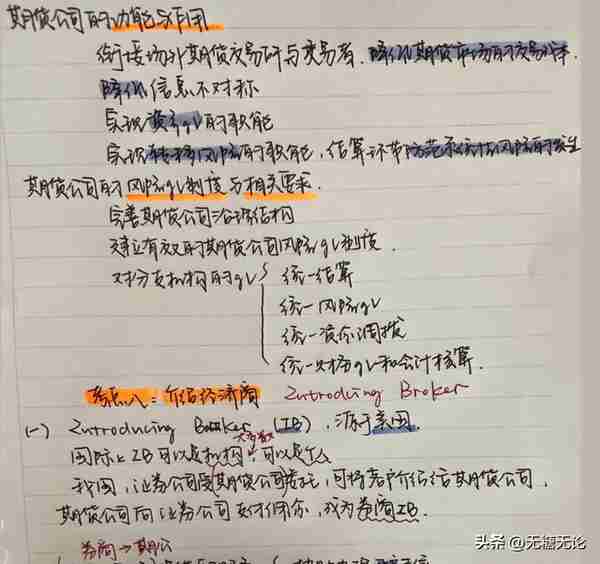 期货公司的功能与作用
衔接场外期货交易所与交易者，降低期货市场的交易成本.
降低信息不对称
实现资产gL的职能
实现转移风险的职能，结算环节防范系统性风险的发生
期货公司的风险gL制度与相关要求.
完善期货公司治理结构
建立有效的期货公司风险gL制度.
对分支机构的gL
统一结算
统一风险gL
统一资金调拨
统一财务gL和会计核算.
考点八：介绍经济商 Introducing Broker
(一) Introducing Broker (IB)，源于美国.
大多数
国际上IB可以是机构，可以是个人
我国，证券公司受期货公司委托，可将客户介绍给期货公司，
期货公司向证券公司支付佣金，成为券商IB.
券商→期公
头条 @无辙无论